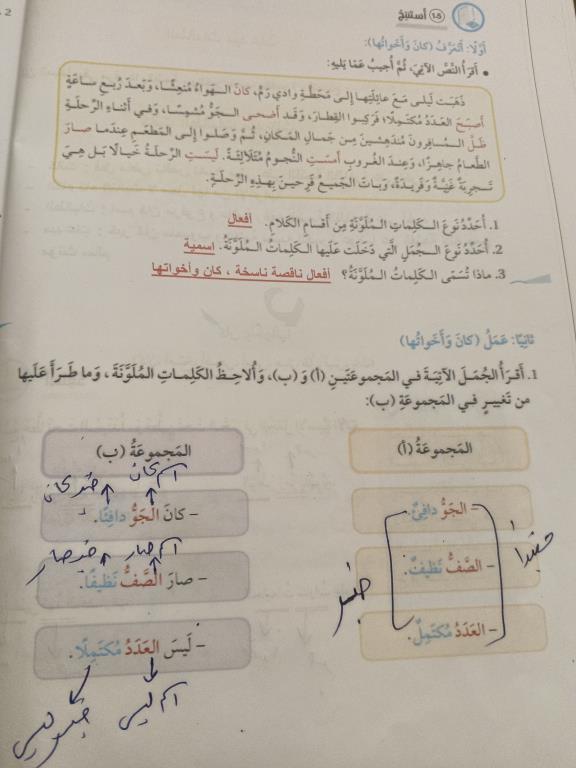 2
(1.5) أَستَنتِجُ
أَوَّلًا: أَتَعَرَّفُ (كانَ وَأَخَواتُها):
• أَقرَأُ النَّصَّ الآتِيَ، ثُمَّ أُجيبُ عَمّا يَليهِ:
ذَهَبَت لَيلى مَعَ عائِلَتِها إِلى مَحَطَّةِ وادي رَمٍّ، كانَ الهَواءُ مُنعِشًا، وَبَعدَ رُبعِ ساعَةٍ
أَصبَحَ العَدَدُ مُكتَمِلًا، فَرَكِبوا القِطارَ، وَقَد أَضحى الجَوُّ مُشمِسًا، وَفي أَثناءِ الرِّحلَةِ
ظَلَّ المُسافِرونَ مُندَهِشينَ مِن جَمالِ المَكانِ، ثُمَّ وَصَلوا إِلى المَطعَمِ عِندَما صارَ
الطَّعامُ جاهِزًا، وَعِندَ الغُروبِ أَمسَتِ النُّجومُ مُتَلَألِئَةً. لَيسَتِ الرِّحلَةُ خَيالًا بَل هِيَ
تَجرِبَةٌ غَنِيَّةٌ وَفَريدَةٌ، وَباتَ الجَميعُ فَرِحينَ بِهذِهِ الرِّحلَةِ.
1. أُحَدِّدُ نَوعَ الكَلِماتِ المُلَوَّنَةِ مِن أَقسامِ الكَلامِ. أفعال
2. أُحَدِّدُ نَوعَ الجُمَلِ الَّتي دَخَلَت عَلَيها الكَلِماتُ المُلَوَّنَةُ. اسمية
3. ماذا تُسَمّى الكَلِماتُ المُلَوَّنَةُ؟ أفعال ناقصة ناسخة ، كان وأخواتها
ثانِيًا: عَمَلُ (كانَ وَأَخَواتُها)
1. أَقرَأُ الجُمَلَ الآتِيَةَ في المَجموعَتَينِ (أ) وَ (ب)، وَأُلاحِظُ الكَلِماتِ المُلَوَّنَةَ، وَما طَرَأَ عَلَيها
مِن تَغييرٍ في المَجموعَةِ (ب):
المَجموعَةُ (أ)
المَجموعَةُ (ب)
اسم كان
خبر كان
- الجَوُّ دافِئٌ.
- كانَ الجَوُّ دافِئًا.
مبتدأ
اسم صار
خبر صار
- الصَّفُّ نَظيفٌ.
- صارَ الصَّفُّ نَظيفًا.
خبر
- العَدَدُ مُكتَمِلٌ.
- لَيسَ العَدَدُ مُكتَمِلًا.
اسم ليس
خبر ليس